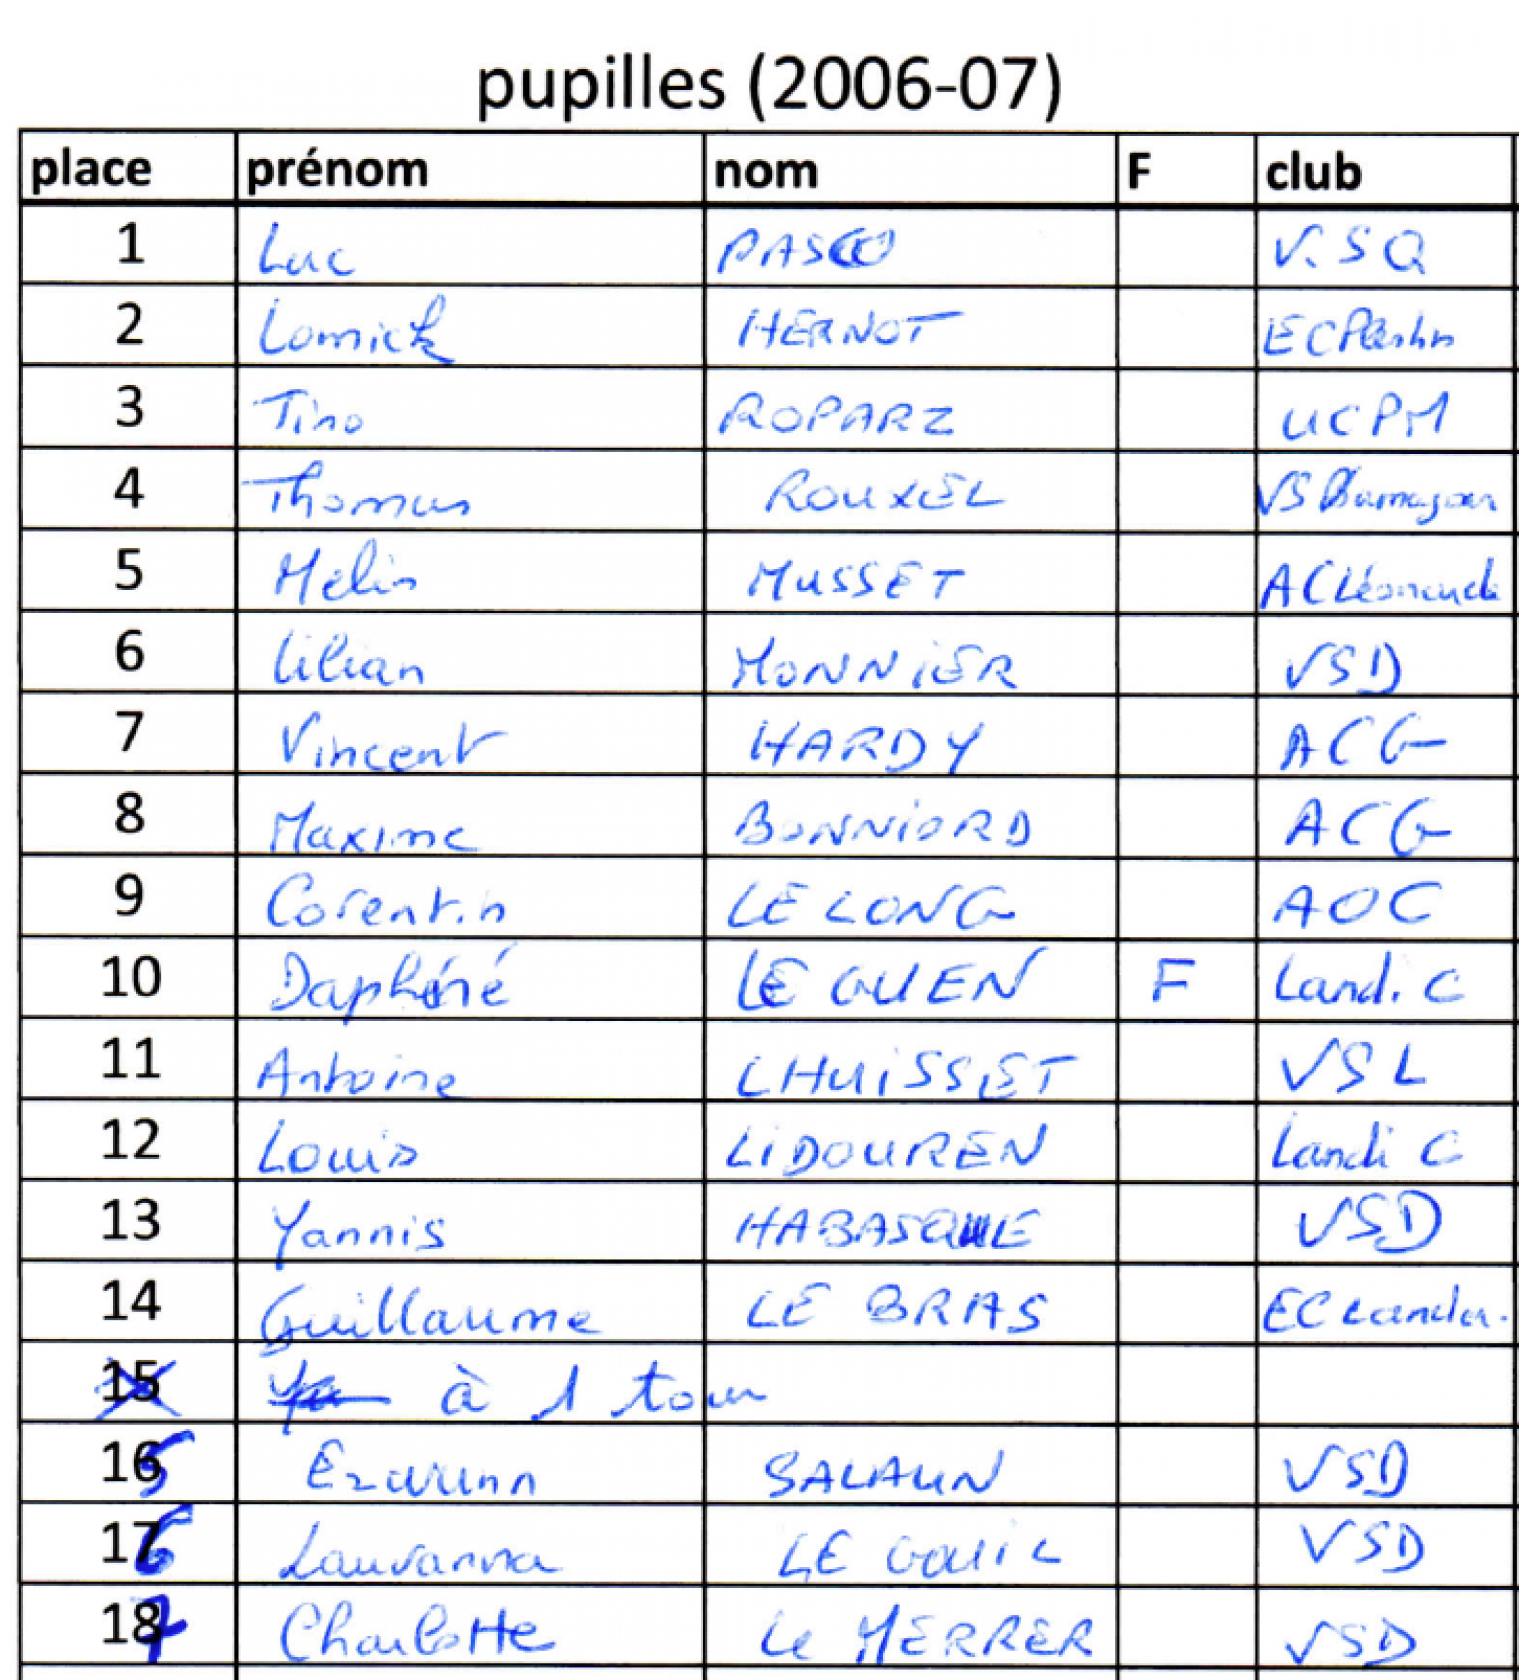 pupilles (2006-07)
place prénom nom F club
1 Luc PASCO V.SQ
2 Lomick HERNOT ECP
3 Tino ROPARZ UCPM
4 Thomas ROUXEL VS
5 Melin MUSSET AC
6 Lilian MONNIER VSD
7 Vincent HARDY ACG
8 Maxime BONNIORD ACG
9 Corentin LE LONG AOC
10 Daphéné LE GUEN F Landi. C
11 Antoine LHUISSET VSL
12 Louis LIDOUREN Landi C
13 Yannis HABASQUE VSD
14 Guillaume LE BRAS EC Lander.
15 à 1 tour
16 5 SALAUN VSD
17 6 Lauvanna LE GOUIL VSD
18 7 Charlotte Le MERRER VSD